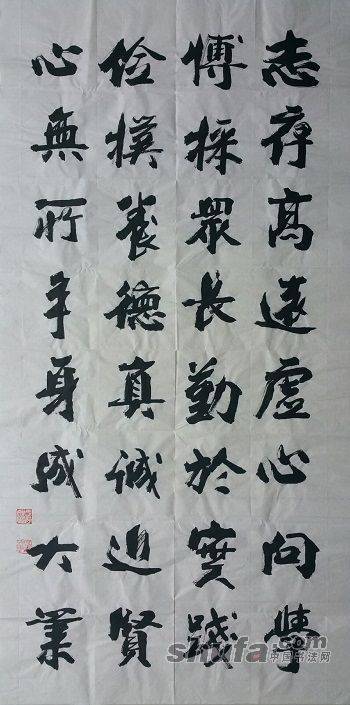 志存高遠虛心向學
博採眾長勤於實踐
儉樸養德真誠賢
心無所身成大業
shufa.com
中国书法网